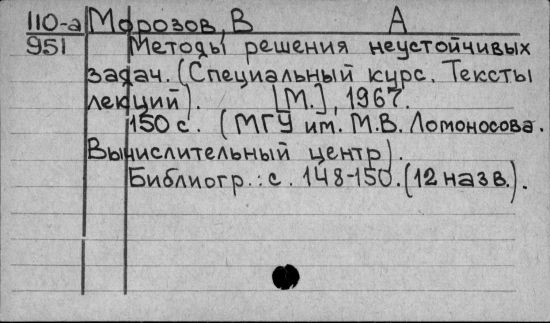 110-а Морозов, В А
951 Методы решения неустойчивых
задач. (Специальный курс. Тексты
лекций). [М.], 1967.
150 с. (МГУ им. М.В. Ломоносова.
Вычислительный центр).
Библиогр.: с. 148-150. (12 назв.).